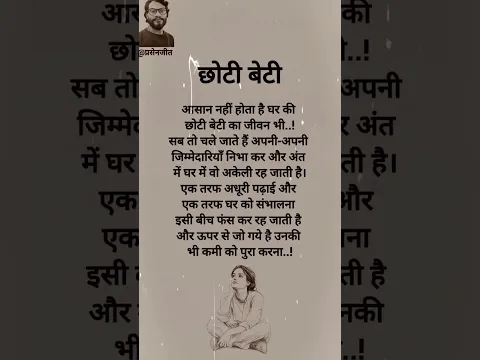 @प्रसेनजीत
छोटी बेटी
आसान नहीं होता है घर की
छोटी बेटी का जीवन भी..!
सब तो चले जाते हैं अपनी-अपनी
जिम्मेदारियाँ निभा कर और अंत
में घर में वो अकेली रह जाती है।
एक तरफ अधूरी पढ़ाई और
एक तरफ घर को संभालना
इसी बीच फंस कर रह जाती है
और ऊपर से जो गये है उनकी
भी कमी को पुरा करना..!